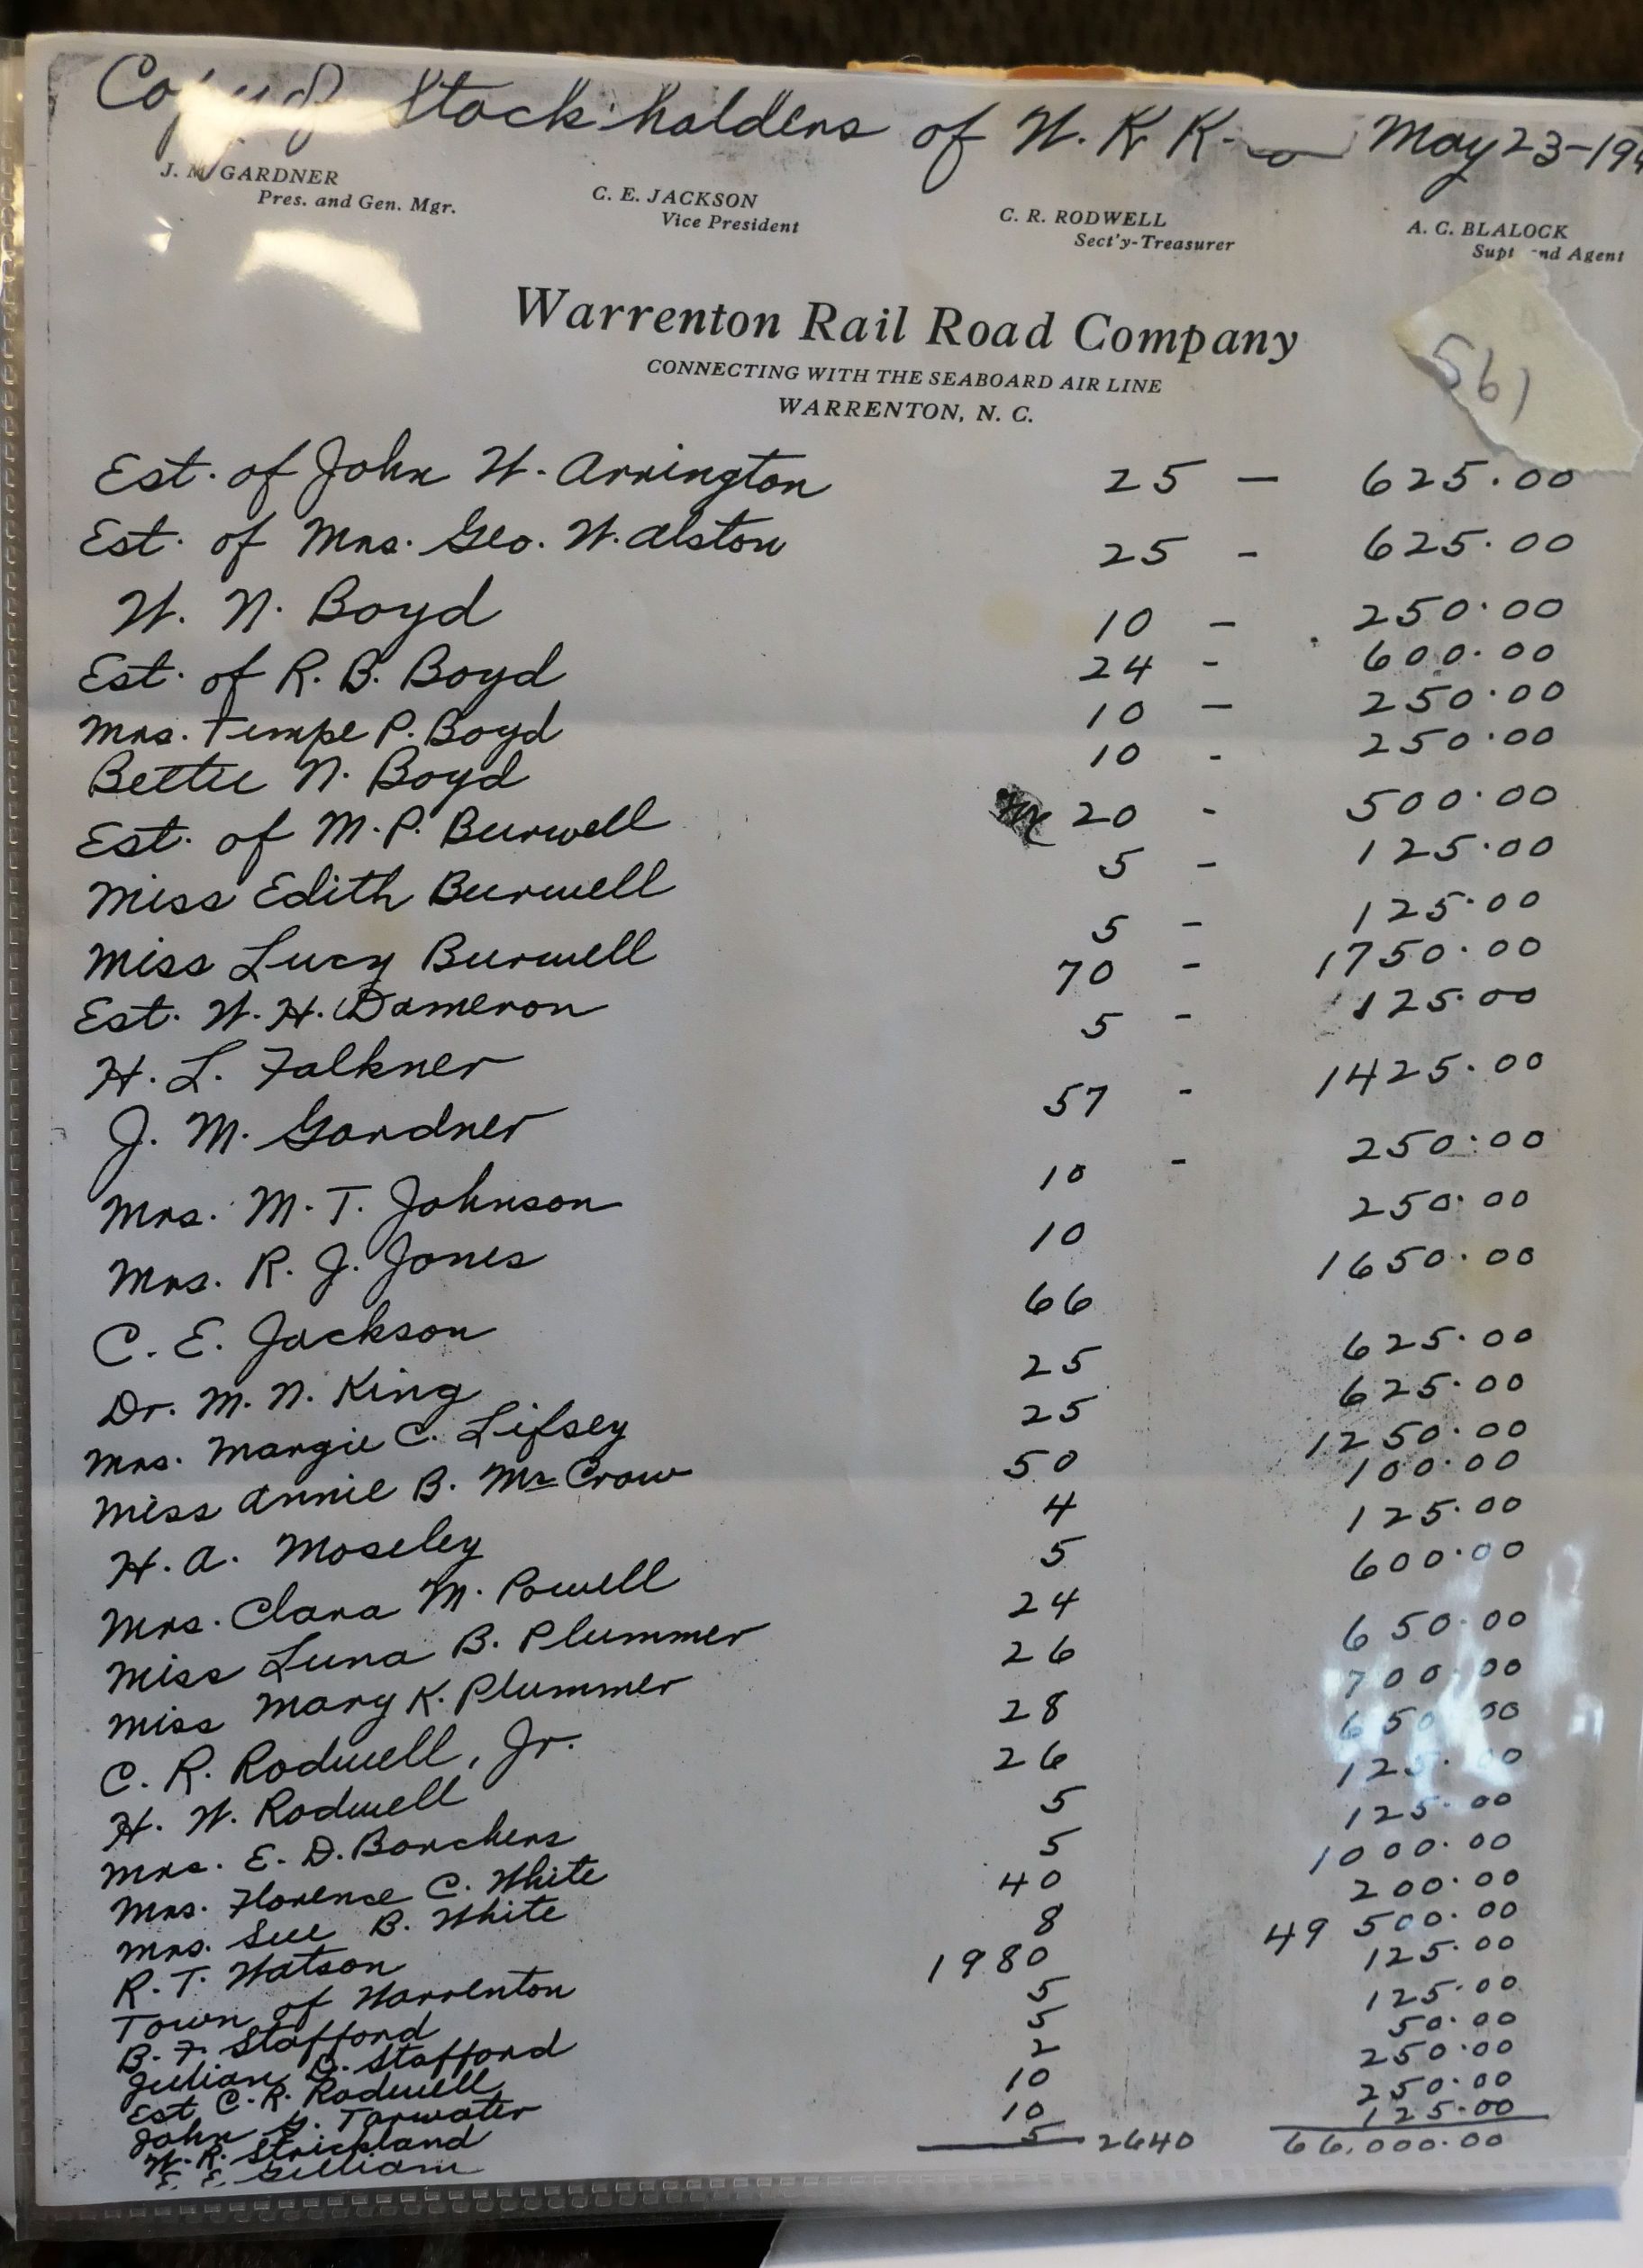 Copy of Stockholders of W. R R. Co May 23-194
J. M. GARDNER
Pres. and Gen. Mgr.
C. E. JACKSON
Vice President
C. R. RODWELL
Sect'y-Treasurer
A. C. BLALOCK
Supt and Agent
Warrenton Rail Road Company
CONNECTING WITH THE SEABOARD AIR LINE
WARRENTON, N. C.
561
Est. of John W. Arrington 25 — 625.00
Est. of Mrs. Geo. W. Alston 25 - 625.00
W. N. Boyd 10 - 250.00
Est. of R. B. Boyd 24 - 600.00
Mrs. Tempe P. Boyd 10 - 250.00
Bettie N. Boyd 10 - 250.00
Est. of M. P. Burwell 20 - 500.00
Miss Edith Burwell 5 - 125.00
Miss Lucy Burwell 5 - 125.00
Est. W. H. Dameron 70 - 1750.00
H. L. Falkner 5 - 125.00
J. M. Gardner 57 - 1425.00
Mrs. M. T. Johnson 10 - 250.00
Mrs. R. J. Jones 10 250.00
C. E. Jackson 66 1650.00
Dr. M. N. King 25 625.00
Mrs. Margie C. Lifsey 25 625.00
Miss Annie B. McCraw 50 1250.00
H. A. Moseley 4 100.00
Mrs. Clara M. Powell 5 125.00
Miss Luna B. Plummer 24 600.00
Miss Mary K. Plummer 26 650.00
C. R. Rodwell, Jr. 28 700.00
H. W. Rodwell 26 650.00
Mrs. E. D. Borchers 5 125.00
Mrs. Florence C. White 5 125.00
Mrs. Sue B. White 40 1000.00
R. T. Watson 8 200.00
Town of Warrenton 1980 49 500.00
B. F. Stafford 5 125.00
Julian B. Stafford 5 125.00
Est C. R. Rodwell 2 50.00
John G. Tarwater 10 250.00
W. R. Strickland 10 250.00
E. E. Gilliam 5 125.00
2640 66,000.00